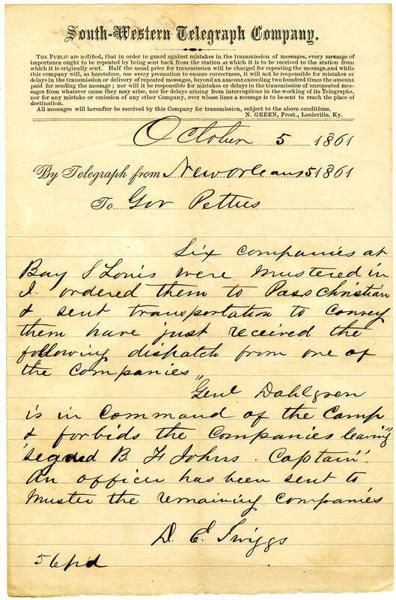 South-Western Telegraph Company.
THE PUBLIC are notified, that in order to guard against mistakes in the transmission of messages, every message of
importance ought to be repeated by being sent back from the station at which it is to be received to the station
from which it is originally sent. Half the usual price for transmission will be charged for repeating the message, and while
this company will, as heretofore, use every precaution to ensure correctness, it will not be responsible for mistakes or
delays in the transmission or delivery of repeated messages, beyond an amount exceeding two hundred times the amount
paid for sending the message; nor will it be responsible for mistakes or delays in the transmission of unrepeated messages
from whatever cause they may arise, nor for delays arising from interruptions in the working of its Telegraphs,
nor for any mistake or omission of any other Company, over whose lines a message is to be sent to reach the place of
destination.
All messages will hereafter be received by this Company for transmission, subject to the above conditions.
N. GREEN, Prest., Louisville, Ky.
October 5 1861
By Telegraph from New orleans 5 1861
To Gov Pettus
Six companies at
Bay S Louis were mustered in
I ordered them to Pass Christian
& sent transportation to convey
them have just received the
following dispatch from one of
the companies
"Genl Dahlgren
is in command of the Camp
& forbids the companies leaving"
"signed B. F Johns Captain"
An officer has been sent to
muster the remaining companies
D. E. Twiggs
56 pd